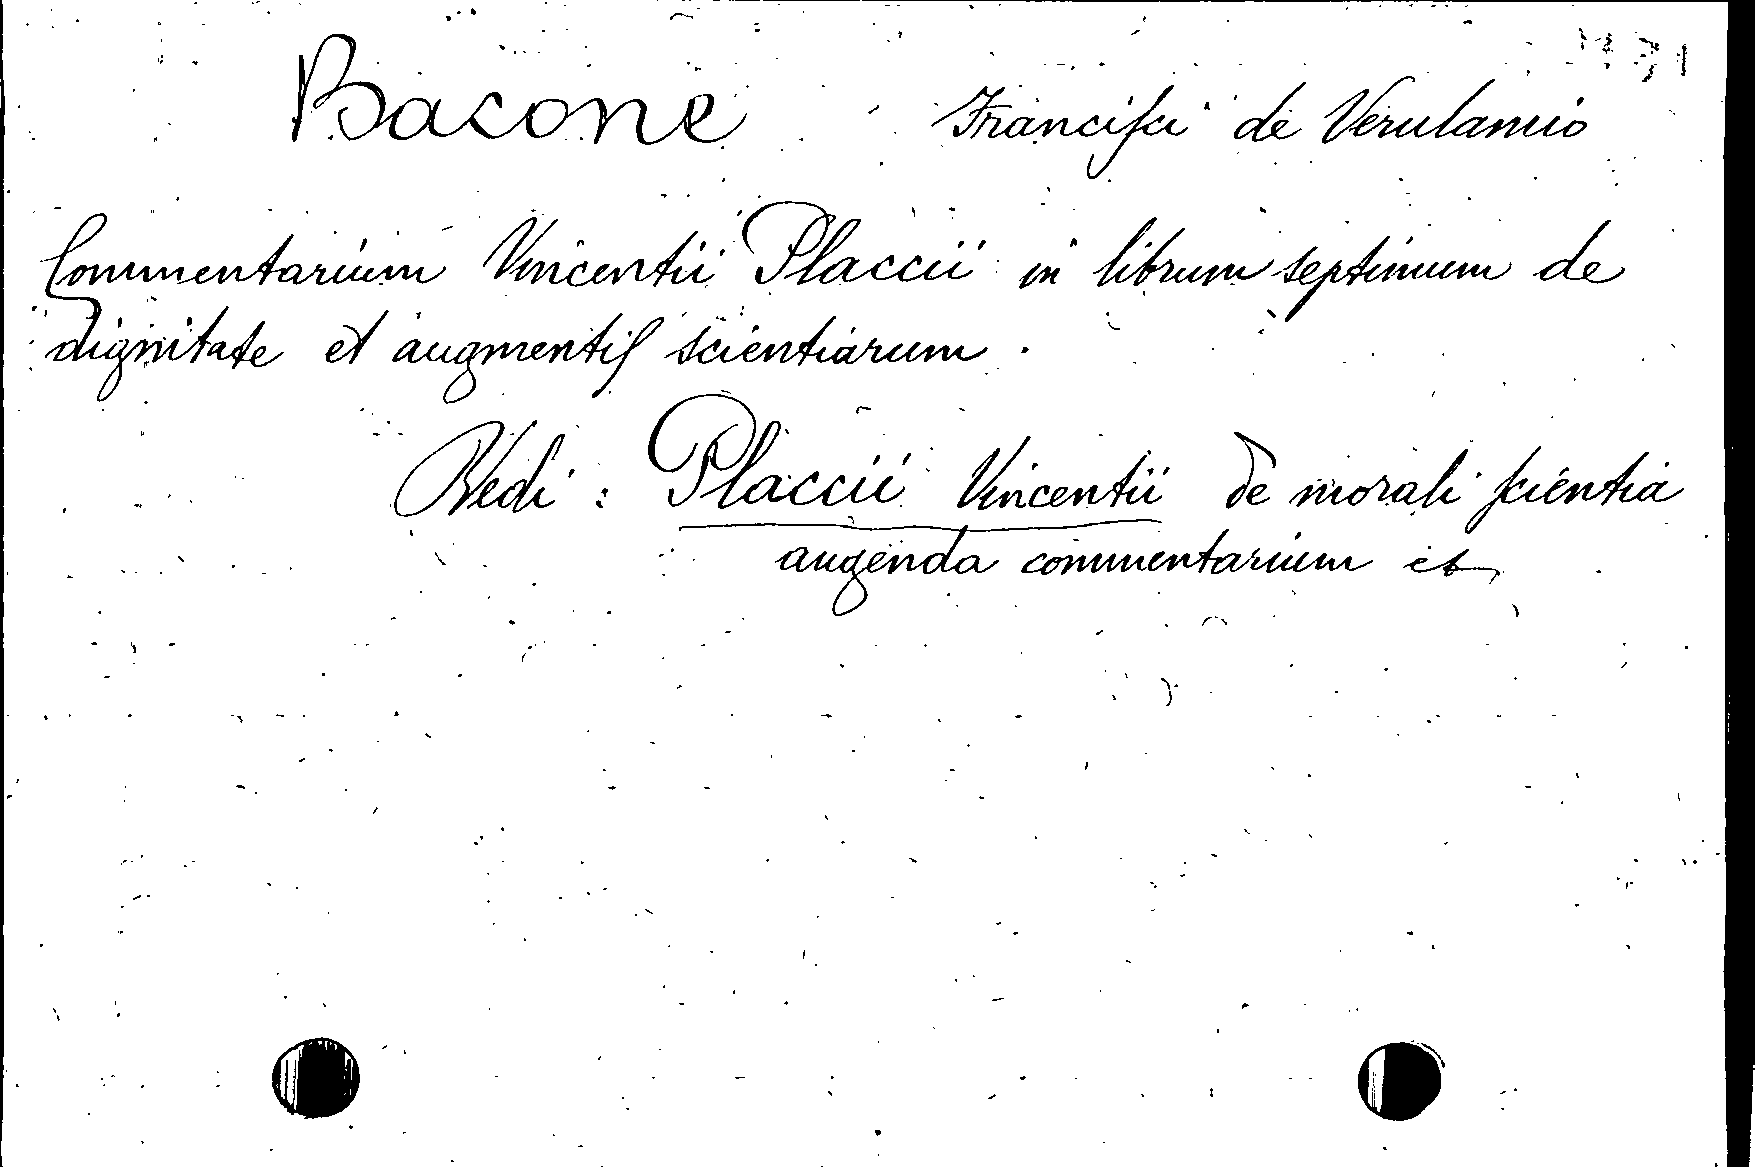 Bacone Franciſci de Verulamio
Commentarium Vincentii Placcii in librum septimum de
dignitate et augmentiſ scientiarum.
Vedi: Placcii Vincentii De morali ſcientia
augenda commentarium et